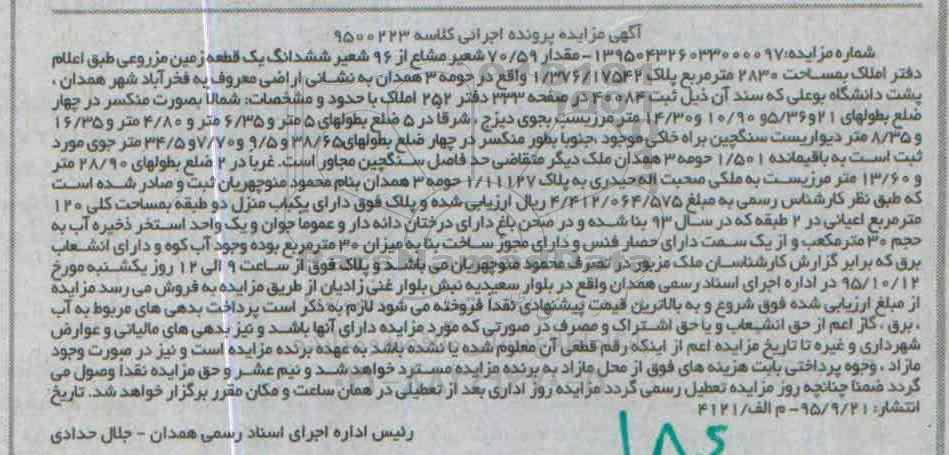 آگهی مزایده پرونده اجرائی کلاسه ۹۵۰۰۲۲۳
شماره مزایده: ۱۳۹۵۰۴۳۲۶۰۳۳۰۰۰۰۹۷- مقدار ۷۰/۵۹ شعیر مشاع از ۹۶ شعیر ششدانگ یک قطعه زمین مزروعی طبق اعلام
دفتر املاک بمساحت ۲۸۳۰ مترمربع پلاک ۱/۳۷۶/۱۷۵۴۲ واقع در حومه ۳ همدان به نشانی اراضی معروف به فخرآباد شهر همدان ،
پشت دانشگاه بوعلی که سند آن ذیل ثبت ۴۰۰۸۴ در صفحه ۳۳۳ دفتر ۲۵۲ املاک با حدود و مشخصات: شمالا بصورت منکسر در چهار
ضلع بطولهای ۲۱و۵/۳۶و ۱۰/۹۰ و۱۴/۳۰ متر مرزیست بجوی دیزج ، شرقا در ۵ ضلع بطولهای ۵ متر و ۶/۳۵ متر و ۴/۸۰ متر و ۱۶/۳۵
و ۸/۳۵ متر دیواریست سنگچین براه خاکی موجود ،جنوبا بطور منکسر در چهار ضلع بطولهای۳۸/۶۵ و ۹/۵ و۷/۷۰و ۳۴/۵ متر جوی مورد
ثبت است به باقیمانده ۱/۵۰۱ حومه ۳ همدان ملک دیگر متقاضی حد فاصل سنگچین مجاور است. غربا در ۲ ضلع بطولهای ۲۸/۹۰ متر
و ۱۳/۶۰ متر مرزیست به ملکی صحبت اله حیدری به پلاک ۱/۱۱۱۲۷ حومه ۳ همدان بنام محمود منوچهریان ثبت و صادر شده است
که طبق نظر کارشناس رسمی به مبلغ ۴/۴۱۲/۰۶۴/۵۷۵ ریال ارزیابی شده و پلاک فوق دارای یکباب منزل دو طبقه بمساحت کلی ۱۲۰
مترمربع اعیانی در ۲ طبقه که در سال ۹۳ بنا شده و در صحن باغ دارای درختان دانه دار و عموما جوان و یک واحد استخر ذخیره آب به
حجم ۳۰ مترمکعب و از یک سمت دارای حصار فنس و دارای مجوز ساخت بنا به میزان ۳۰ مترمربع بوده وجود آب کوه و دارای انشعاب
برق که برابر گزارش کارشناسان ملک مزبور در تصرف محمود منوچهریان می باشد و پلاک فوق از ساعت ۹ الی ۱۲ روز یکشنبه مورخ
۹۵/۱۰/۱۲ در اداره اجرای اسناد رسمی همدان واقع در بلوار سعیدیه نبش بلوار غنی زادیان از طریق مزایده به فروش می رسد مزایده
از مبلغ ارزیابی شده فوق شروع و به بالاترین قیمت پیشنهادی نقدا فروخته می شود لازم به ذکر است پرداخت بدهی های مربوط به آب
، برق ، گاز اعم از حق انشیعاب و یا حق اشتراک و مصرف در صورتی که مورد مزایده دارای آنها باشد و نیز بدهی های مالیاتی و عوارض
شهرداری و غیره تا تاریخ مزایده اعم از اینکه رقم قطعی آن معلوم شده یا نشده باشد به عهده برنده مزایده است و نیز در صورت وجود
مازاد ، وجوه پرداختی بابت هزینه های فوق از محل مازاد به برنده مزایده مسترد خواهد شد و نیم عشر و حق مزایده نقدا وصول می
گردد ضمنا چنانچه روز مزایده تعطیل رسمی گردد مزایده روز اداری بعد از تعطیلی در همان ساعت و مکان مقرر برگزار خواهد شد. تاریخ
انتشار: ۹۵/۹/۲۱- م الف/۴۱۲۱
رئیس اداره اجرای اسناد رسمی همدان - جلال حدادی
۱۸۶